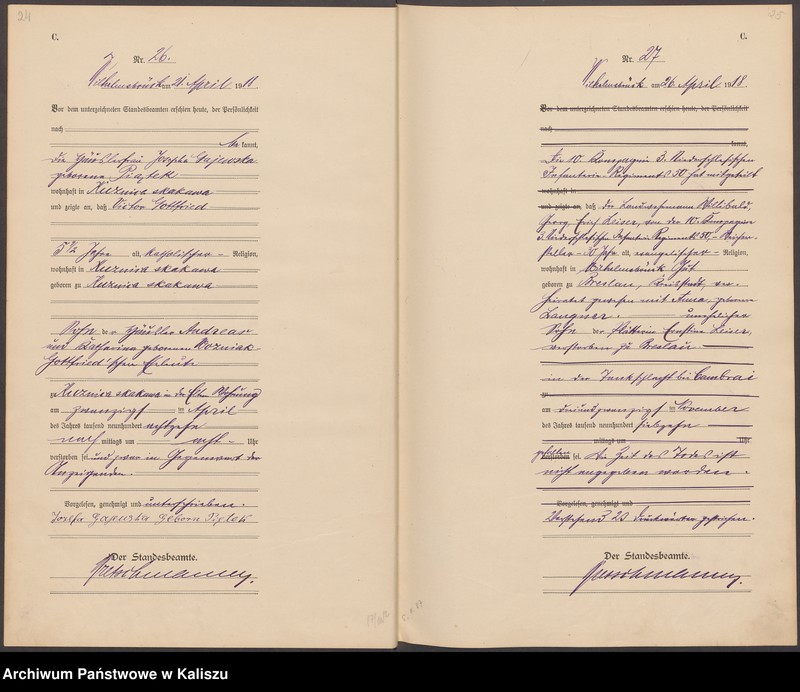 24
C.
Nr. 26.
Wilhelmsbrück am 21. April 1918
Vor dem unterzeichneten Standesbeamten erschien heute, der Persönlichkeit
nach
be kannt,
die Häuslerfrau Josepha Gajewska
geborene Piątek
wohnhaft in Kuznica skakawa
und zeigte an, daß Victor Gottfried
5 1/2 Jahre alt, katholischer Religion,
wohnhaft in Kuznica skakawa
geboren zu Kuznica skakawa
Sohn der Häusler Andreas
und Katharina geborenen Wozniak
Gottfried'schen Eheleute
zu Kuznica skakawa in der Wohnung
am zwanzigst en April
des Jahres tausend neunhundert achtzehn
nach mittags um acht Uhr
verstorben sei und zwar in Gegenwart der
Anzeigenden.
Vorgelesen, genehmigt und unterschrieben.
Josefa Gajewska Geborn Piątek
Der Standesbeamte.
25
C.
Nr. 27
Wilhelmsbrück am 26. April 1918.
Vor dem unterzeichneten Standesbeamten erschien heute, der Persönlichkeit
nach
kannt,
Die 10. Kompagnie 3. Niederschlesischen
Infanterie-Regiments 50 hat mitgeteilt
wohnhaft in
und zeigte an, daß der Landwehrmann Willibald,
Georg, Erich Leiser, von der 10. Kompagnie
3. Niederschlesischen Infanterie Regiments 50,
30 Jahr alt, evangelischer Religion,
wohnhaft in Wilhelmsbrück Gut
geboren zu Breslau, Kreisstadt, ver-
heiratet gewesen mit Anna geborene
Langner. unehelicher
Sohn der Plätterin Ernstine Leiser,
verstorben zu Breslau
in der Tankschlacht bei Cambrai
zu
am dreiundzwanzigst en November
des Jahres tausend neunhundert siebzehn
mittags um Uhr
gefallen verstorben sei. Die Zeit des Todes ist
nicht angegeben worden.
Vorgelesen, genehmigt und
Vorstehend 23 Druckwörter gestrichen.
Der Standesbeamte.
Archiwum Państwowe w Kaliszu